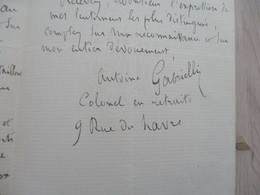 au
Recevez, l'expression de
mes sentiments les plus distingués,
comptez sur ma reconnaissance et sur
mon entier dévouement
Antoine Gabrielli
Colonel en retraite
9 Rue du Havre
et